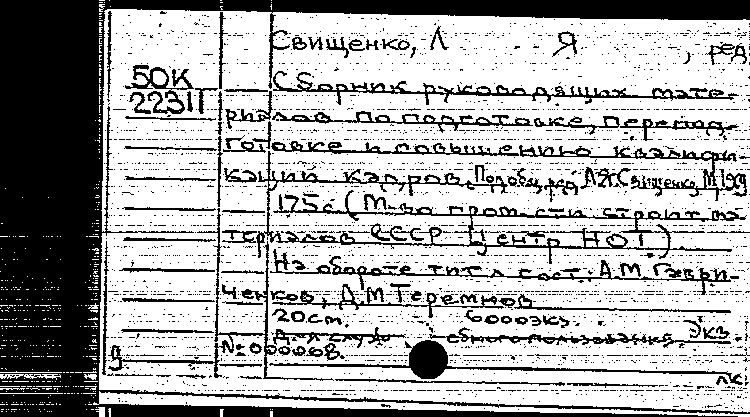 Свищенко, Л Я , ред
50К
22311
Сборник руководящих мате-
риалов по подготовке, перепод-
готовке и повышению квалифи-
кации кадров. Под общ. ред. Л.Я. Свищенко. М, 199
175с. (М-во пром-сти строит. ма-
териалов СССР Центр НОТ)
На обороте тит л сост.: А.М. Гаври-
ченков, Д.М Теремнов
20см. 6000экз.
Для служебного пользования. Экз.
№ 000008.
9
лк.